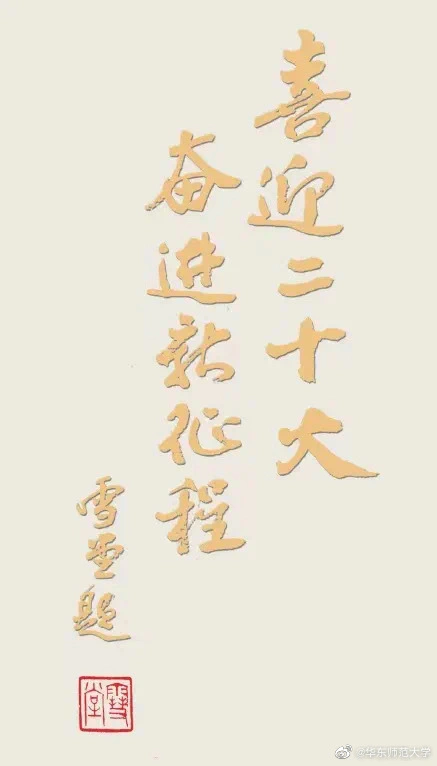 喜迎二十大
奋进新征程
雪堂题
雪堂
@华东师范大学